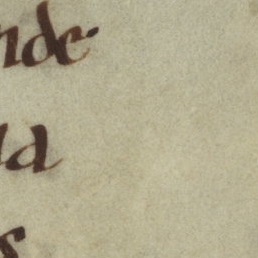 nde·
da
s